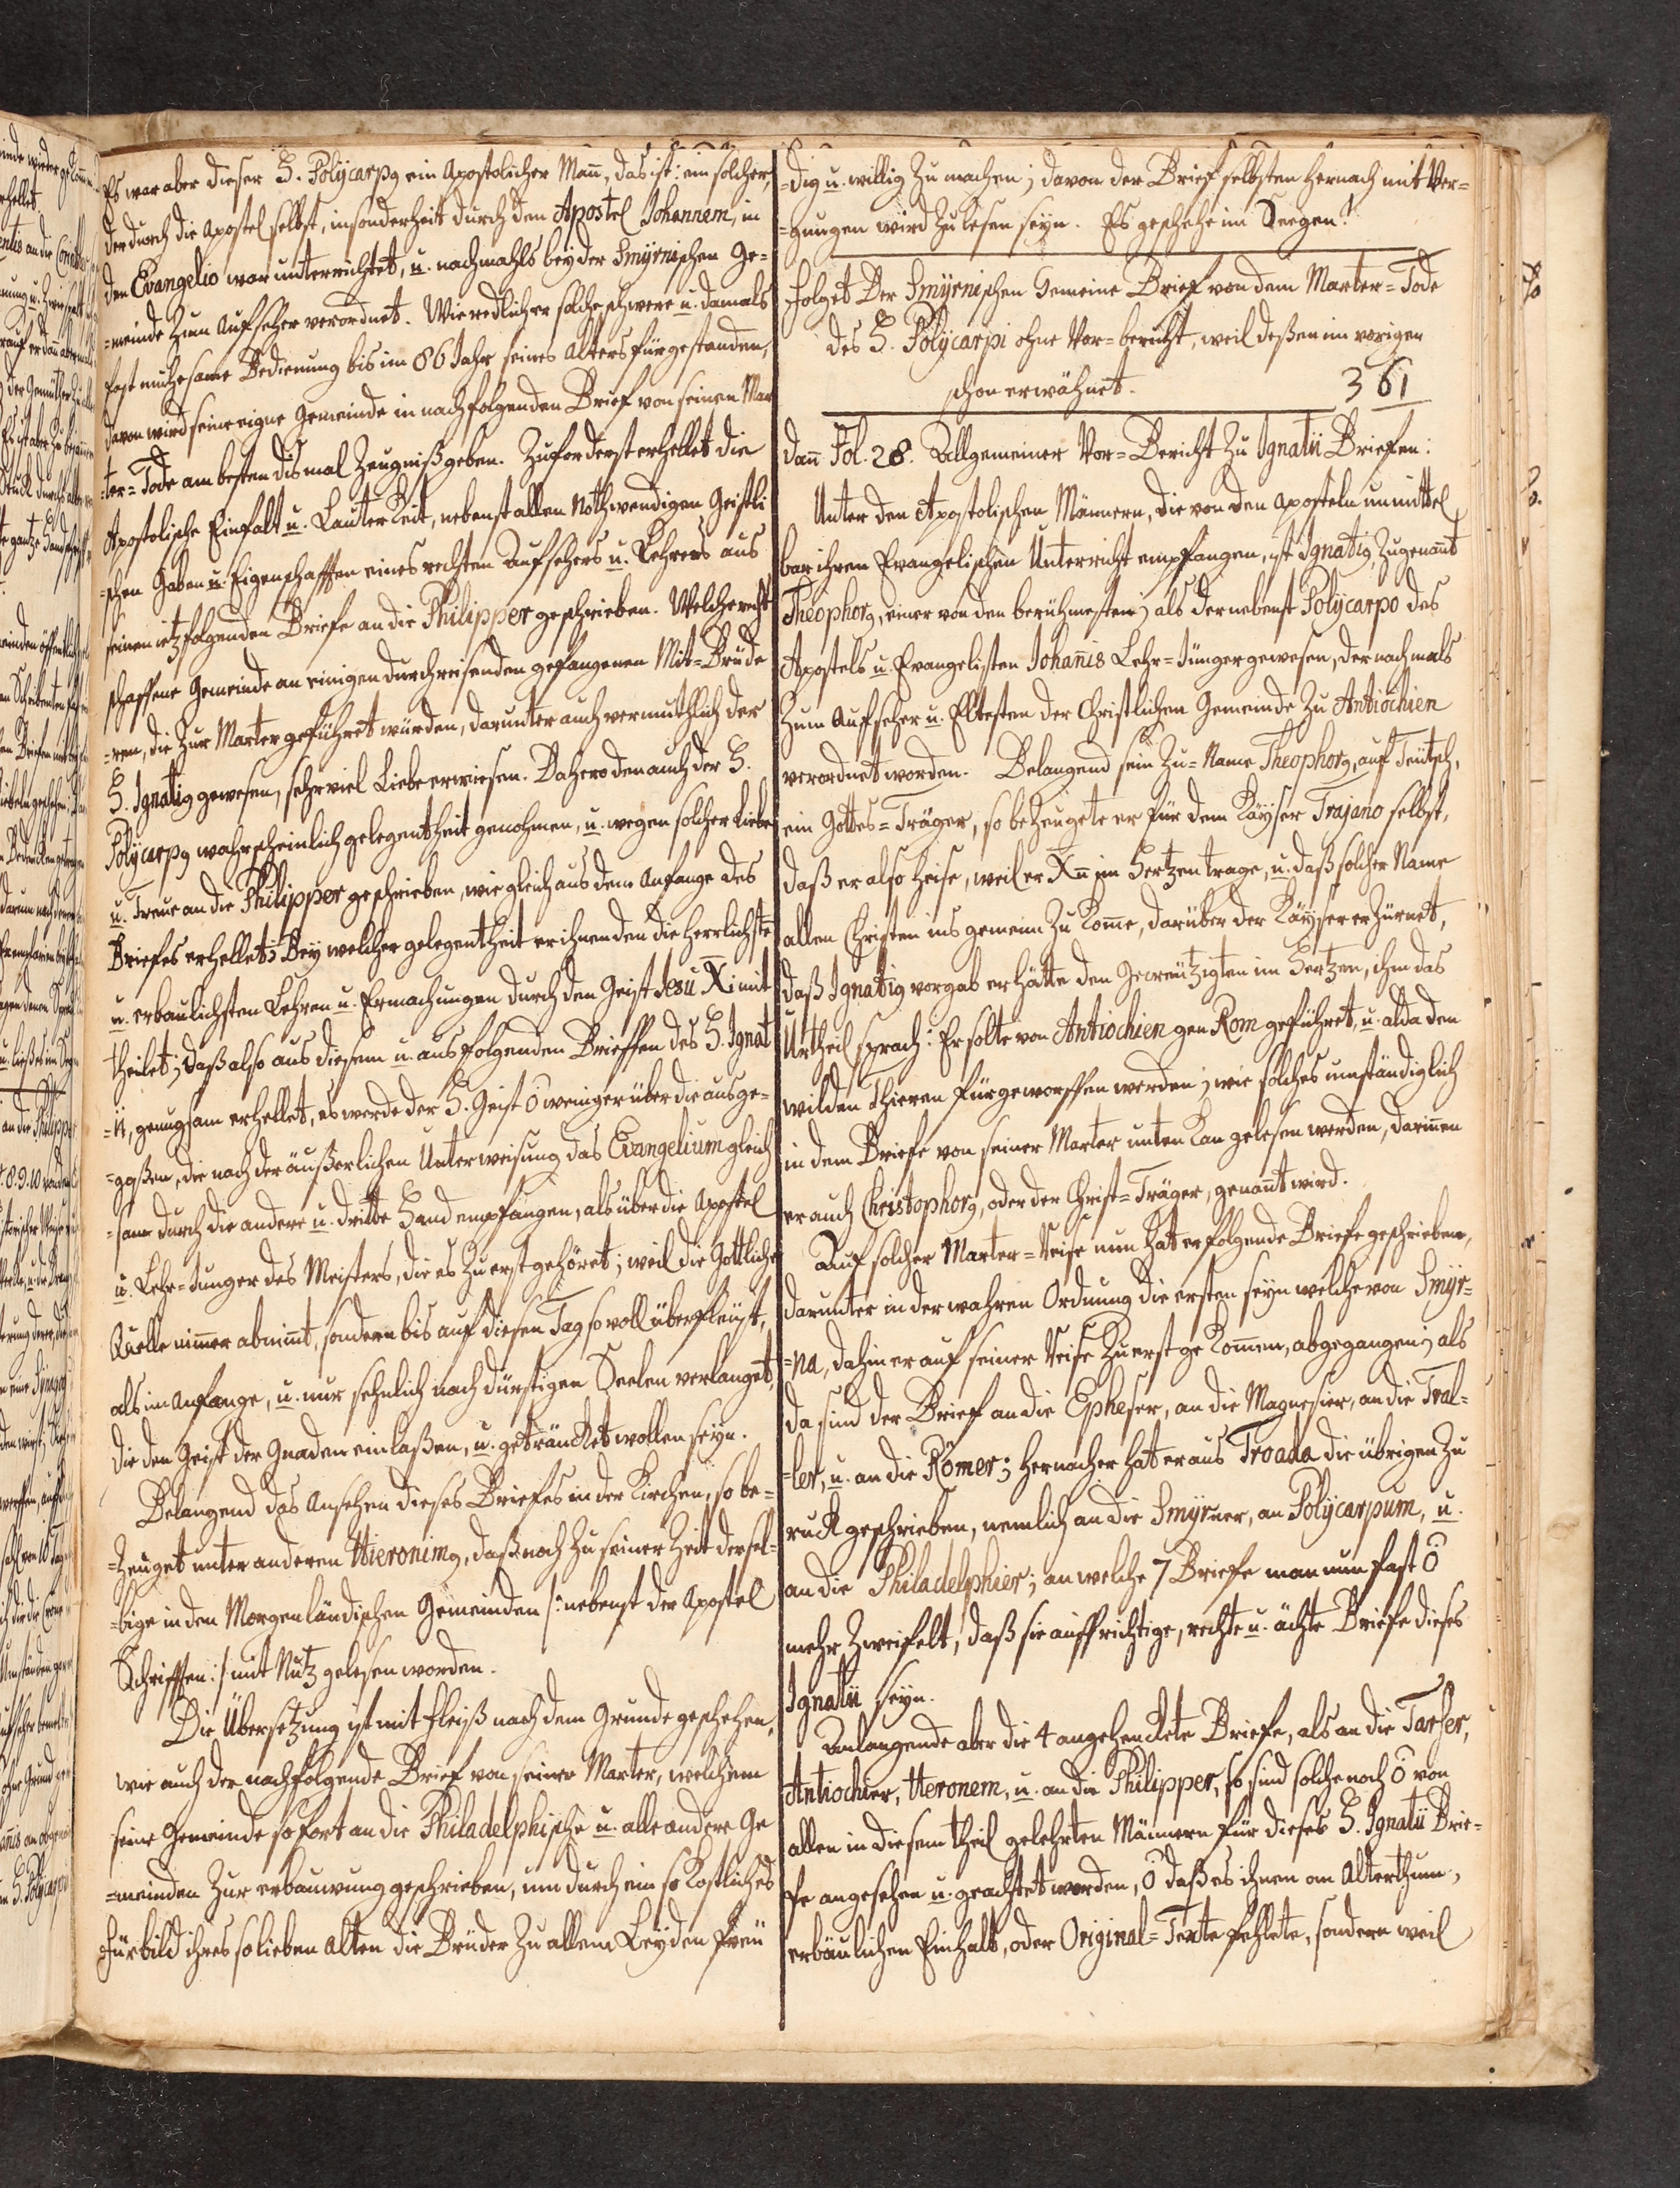 Es war aber dieser H. Polÿcarpg ein Apostolischer Mañ, das ist: ein solcher,
der durch die Apostel selbst, insonderheit durch den Apostel Johannem, in
den Evangelio war unterrichtet, u. nachmahls beÿ der Smÿrnischen Ge=
=meinde zum Aufseher verordnet. Wie redlich er solche schwere u. damals
fast mühesame Bedienung bis im 86 Jahr seines Alters fürgestanden,
davon wird seine eigne Gemeinde in nachfolgenden Brief von seinem Mar
ter=Tode am besten dismal Zeugniß geben. Zuforderst erhellet die
Apostolische Einfalt u. Lauterkeit, nebenst allen nothwendigen Geistli
=chen Gaben u. Eigenschafften eines rechten Aufsehers u. Lehrers aus
seinen ietz folgenden Briefe an die Philipper geschrieben. Welche recht
schaffene Gemeinde an einigen durchreisenden gefangenen Mit=Brüde
=ren, die zur Marter geführet würden, darunter auch vermuthlich der
H. Ignatig gewesen, sehr viel Liebe erwiesen. Dahero den auch der H.
Polÿcarpg wahrscheinlich gelegentheit genohmen, u. wegen solcher Liebe
u. Treue an die Philipper geschrieben, wie gleich aus dem Anfange des
Briefes erhellet; Beÿ welcher gelegentheit er ihnen den die herrlichste
u. erbaulichsten Lehren u. Ermachungen durch den Geist Jesu Xi mit
theilet; daß also aus diesem u. aus folgenden Brieffen des H. Ignat
=ii, genugsam erhellet, es werde der H. Geist ō weniger über die ausge=
=goßen, die nach der äußerlichen Unterweisung das Evangelium gleich
=sam durch die andere u. dritte Hand empfangen, als über die Apostel
u. Lehr=Junger des Meisters, die es zu erst gehöret; weil die Göttliche
Quelle nim̃er abnim̃t, sondern bis auf diesen Tag so voll überfleüst,
als im Anfange, u. nur sehnlich nach dürstigen Seelen verlanget,
die den Geist der Gnaden einlaßen, u. geträncket wollen seÿn.
Belangend das Ansehen dieses Briefes in der Kirchen, so be=
=zeuget unter anderen Hieronimg, daß noch zu seiner Zeit dersel=
=bige in den Morgenländischen Gemeinden /: nebenst der Apostel
Schrifften :/ mit Nutz gelesen worden.
Die Übersetzung ist mit fleiß nach dem Grunde geschehen,
wie auch der nachfolgende Brief von seiner Marter, welchem
seine Gemeinde sofort an die Philadelphische u. alle andere Ge
=meinden zur erbauwung geschrieben, um durch ein so köstliches
Fürbild ihres so lieben Alten die Brüder zu allem Leÿden freü
=dig u. willig zu machen; davon der Brief selbsten hernach mit Ver=
=gnugen wird zu lesen seÿn. Es geschehe im Seegen!
Folget Der Smÿrnischen Gemeine Brief von dem Marter=Tode
des H. Polÿcarpi ohne Vor=bericht, weil deßen im vorigen
schon erwähnet. 361
dañ Fol. 28. Allgemeiner Vor=Bericht zu Ignatii Briefen:
Unter den Apostolischen Männern, die von den Aposteln unmittel
bar ihren Evangelischen Unterricht empfangen, ist Ignatig, zugenañt
Theophorg, einer von den berühmesten; als der nebenst Polÿcarpo des
Apostels u. Evangelisten Johañis Lehr=Jünger gewesen, der nachmals
zum Aufseher u. Eltesten der Christlichen Gemeinde zu Antiochien
verordnet worden. Belangend sein Zu=Name Theophorg, auf Teütsch,
ein Gottes=Träger, so bezeugete er für dem Kaÿser Trajano selbst,
daß er also heise, weil er Xn im Hertzen trage, u. daß solcher Name
allen Christen ins gemein zu kom̃e, darüber der Käÿser erzürnet,
daß Ignatig vorgab er hätte den Gecreutzigten im Hertzen, ihm das
Urtheil sprach: Er solte von Antiochien gen Rom geführet, u. alda den
wilden Thieren fürgeworffen werden; wie solches umständiglich
in dem Briefe von seiner Marter unten kan gelesen werden, darin̄en
er auch Christophorg, oder der Christ=Träger, genañt wird.
Auf solcher Marter=Reise nun hat er folgende Briefe geschrieben,
darunter in der wahren Ordnung die ersten seÿn welche von Smÿr=
=na, dahin er auf seiner Reise zu erst gekom̃en, abgegangen; als
da sind der Brief an die Epheser, an die Magnesier, an die Tral=
=ler, u. an die Römer; hernacher hat er aus Troada die übrigen zu
ruck geschrieben, nemlich an die Smÿrner, an Polÿcarpum, u.
an die Philadelphier; an welche 7 Briefe man nun fast ō
mehr zweifelt, daß sie auffrichtige, rechte u. ächte Briefe dieses
Ignatii seÿn.
Anlangende aber die 4 angehenckete Briefe, als an die Tarser,
Antiochier, Heronem, u. an die Philipper, so sind solche noch ō von
allen in diesem theil gelehrten Männern für dieses H. Ignatii Brie=
fe angesehen u. geachtet worden, ō daß es ihnen am Alterthum,
erbäulichen Einhalt, oder Original=Texte fehlete, sondern weil